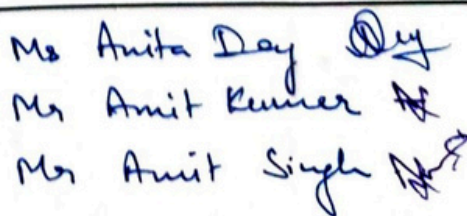 Ms Anita Dey
Mr Amit Kumar
Mr Amit Singh